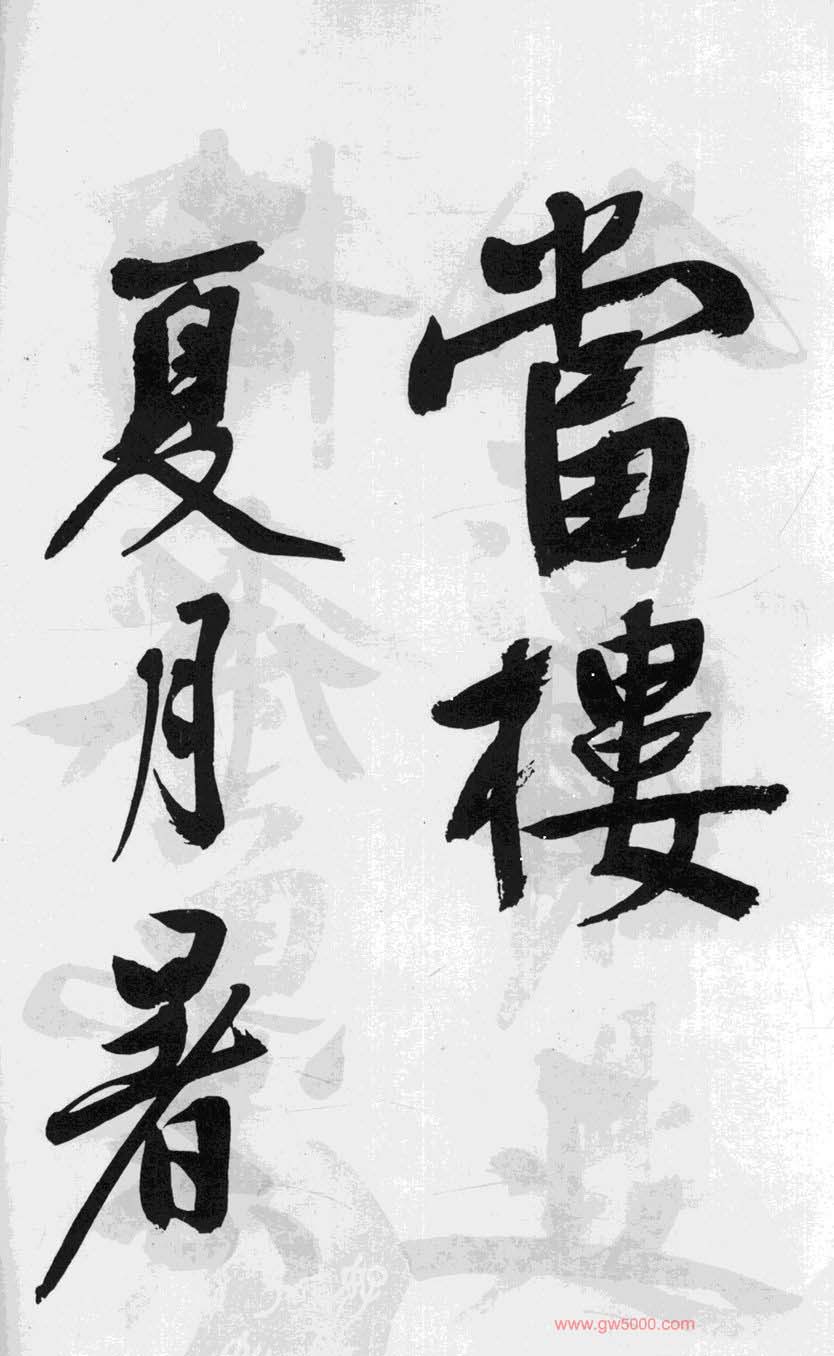 當樓
夏月暑
www.gw5000.com